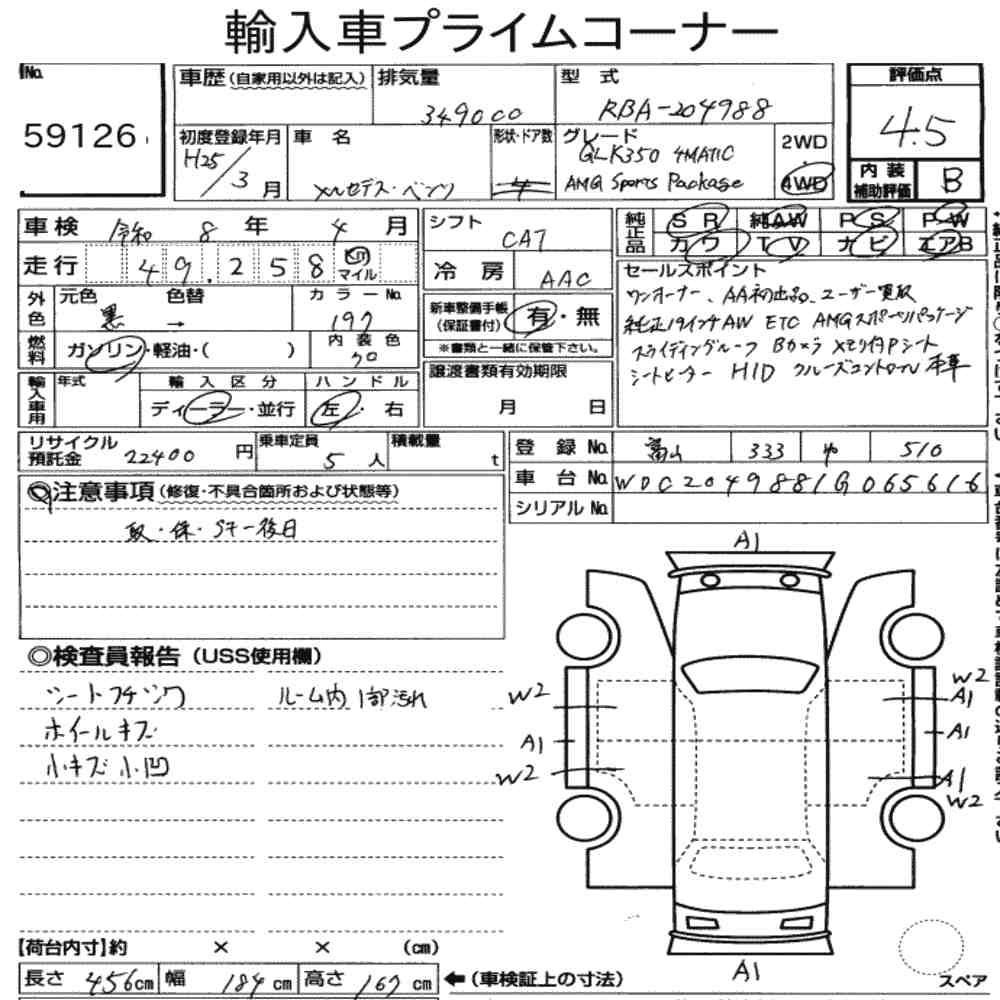 輸入車プライムコーナー
No.
59126
車歴 (自家用以外は記入)
排気量
3490cc
型 式
RBA-204988
評価点
4.5
内装補助評価 B
初度登録年月
H25/3月
車 名
メルセデス・ベンツ
形状・ドア数
4
グレード
GLK350 4MATIC
AMG Sports Package
2WD
4WD
車検 令和 8 年 4 月
走行 49,258 km マイル
外色 元色 黒 色替 →
カラーNo. 197
燃料 ガソリン・軽油・( )
内装色 クロ
輸入車用 年式
輸入区分 ディーラー・並行
ハンドル 左・右
シフト CA7
冷房 AAC
新車整備手帳(保証書付) 有・無
※書類と一緒に保管下さい。
譲渡書類有効期限
月 日
純正品 SR 純AW PS PW
カワ TV ナビ エアB
セールスポイント
ワンオーナー、AA初出品、ユーザー買取
純正19インチAW ETC AMGスポーツパッケージ
スライディングルーフ Bカメラ メモリ付Pシート
シートヒーター HID クルーズコントロール 本革
リサイクル預託金 22400円
乗車定員 5人
積載量 t
登録No. 富山 333 や 510
車台No. WDC2049881G065616
シリアルNo.
◎注意事項 (修復・不具合箇所および状態等)
取・保・Sキー後日
◎検査員報告 (USS使用欄)
シートフチシワ ルーム内1部汚れ
ホイールキズ
小キズ小凹
A1
W2
A1
W2
W2
A1
A1
A1
W2
A1
スペア
【荷台内寸】約 × × (cm)
長さ 456cm 幅 184cm 高さ 167cm
←(車検証上の寸法)